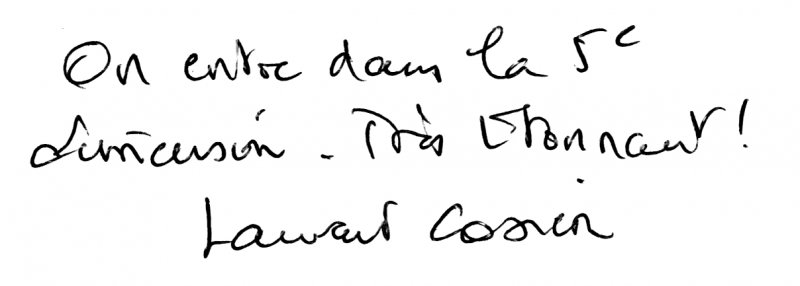 On entre dans la 5e
dimension. Très Etonnant!
Laurent